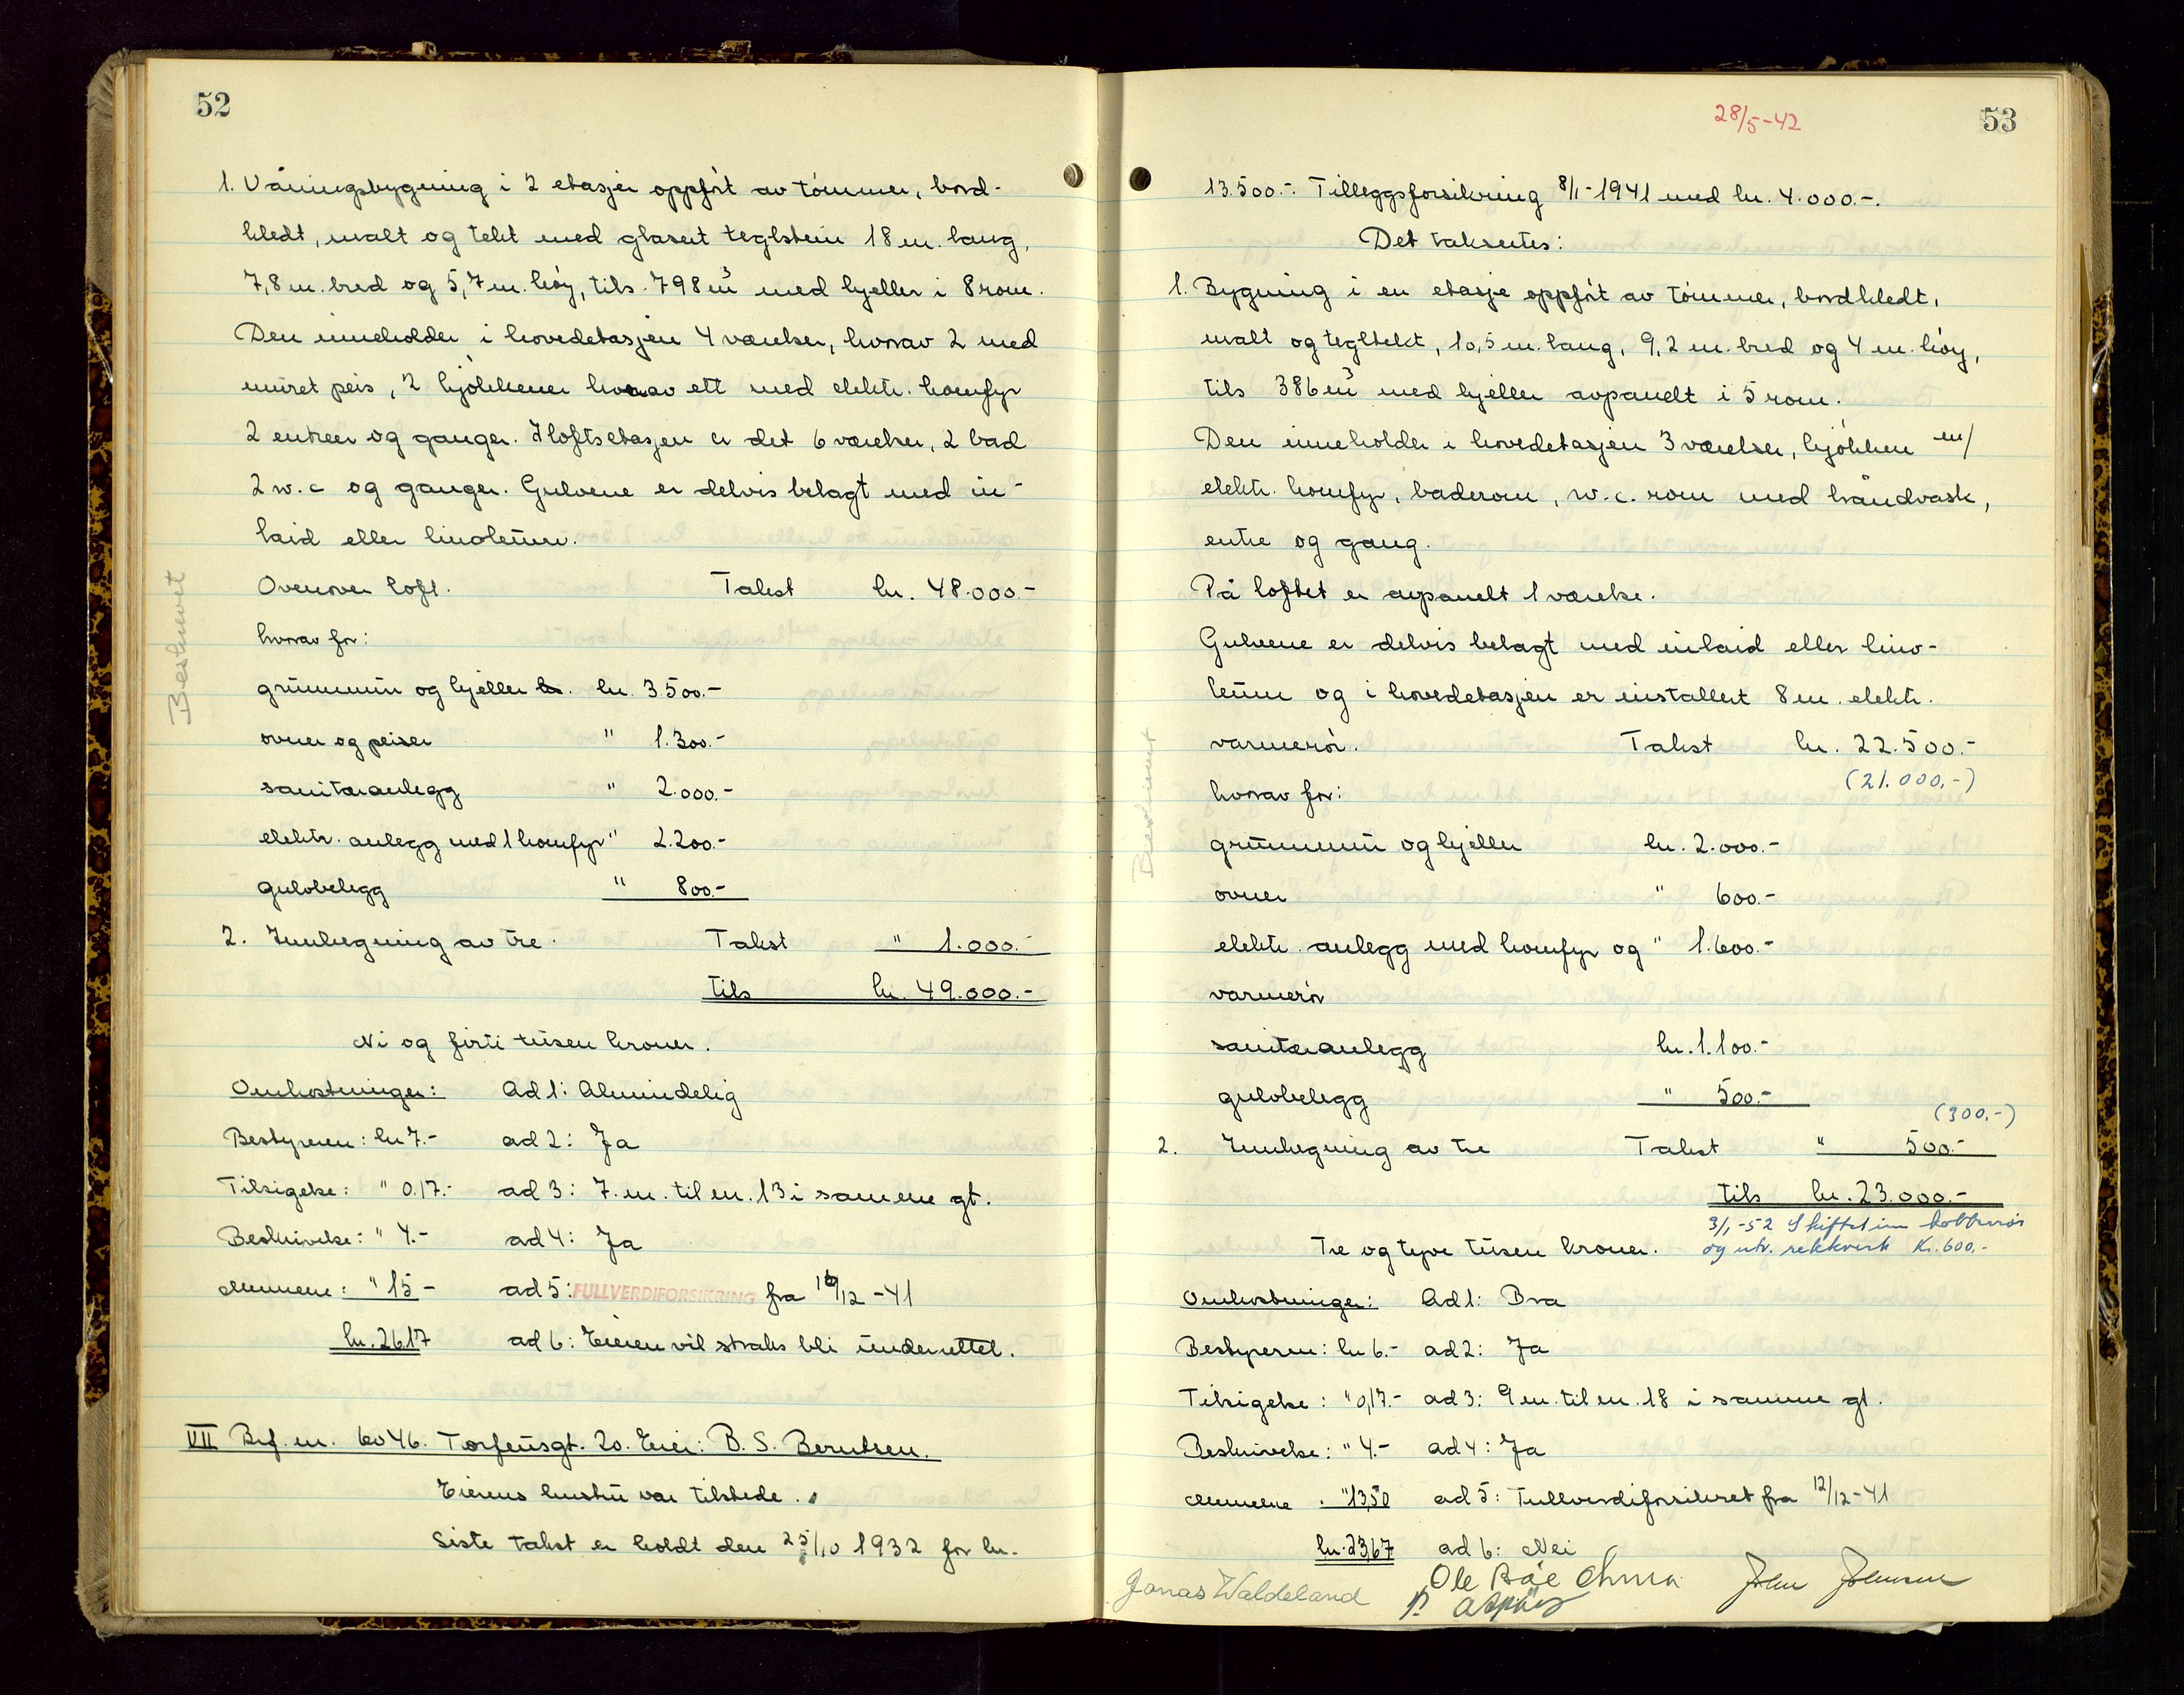 52
1. Våningsbygning i 2 etasjer oppført av tømmer, bord-
kledt, malt og tekt med glasert teglstein 18 m. lang,
7,8 m. bred og 5,7 m. høy, tils. 798 m³ med kjeller i 8 rom.
Den inneholder i hovedetasjen 4 værelser, hvorav 2 med
muret peis, 2 kjøkkener hvorav ett med elektr. komfyr
2 entreer og ganger. I loftsetasjen er det 6 værelser, 2 bad
2 w.c og ganger. Gulvene er delvis belagt med in-
laid eller linoleum.
Ovenover loft. Takst kr. 48.000.-
hvorav for:
grunnmur og kjeller kr. 3.500.-
ovner og peiser " 1.300.-
sanitæranlegg " 2.000.-
elektr. anlegg med 1 komfyr " 2.200.-
gulvbelegg " 800.-
2. Innhegning av tre. Takst " 1.000.-
tils kr. 49.000.-
Ni og førti tusen kroner.
Omkostninger: Ad 1: Almindelig
Bestyreren: kr 7.- ad 2: Ja
Tilsigelse: " 0.17.- ad 3: 7. m. til en. 13 i samme gt.
Beskrivelse: " 4.- ad 4: Ja
Mennene: " 15 - ad 5: FULLVERDIFORSIKRING fra 16/12 -41
kr. 26.17 ad 6: Eieren vil straks bli underrettet.
VII Brf. nr. 6046. Torfeusgt. 20. Eier: B. S. Berntsen.
Eierens hustru var tilstede.
Siste takst er holdt den 25/10 1932 for kr.
Beskrevet
28/5-42
53
13.500.-. Tilleggsforsikring 8/1-1941 med kr. 4.000.-.
Det takseres:
1. Bygning i en etasje oppført av tømmer, bordkledt,
malt og tegltekt, 10,5 m. lang, 9,2 m. bred og 4 m. høy,
tils 386 m³ med kjeller avpanelt i 5 rom.
Den inneholder i hovedetasjen 3 værelser, kjøkken m/
elektr. komfyr, baderom, w.c. rom med håndvask,
entre og gang.
På loftet er avpanelt 1 værelse.
Gulvene er delvis belagt med inlaid eller lino-
leum og i hovedetasjen er installert 8 m. elektr.
varmerør. Takst kr. 22.500.-
(21.000,-)
hvorav for:
grunnmur og kjeller kr. 2.000.-
ovner " 600.-
elektr. anlegg med komfyr og " 1.600.-
varmerør
sanitæranlegg kr. 1.100.-
gulvbelegg " 500.-
(300,-)
2. Innhegning av tre Takst " 500.-
tils kr. 23.000.-
3/1-52 Skiftet inn
og utv. rekkverk Kr. 600,-
Tre og tyve tusen kroner.
Omkostninger: Ad 1: Bra
Bestyreren: kr 6.- ad 2: Ja
Tilsigelse: " 0,17.- ad 3: 9 m. til en. 18 i samme gt.
Beskrivelse: " 4.- ad 4: Ja
Mennene : " 13,50 ad 5: Fullverdiforsikret fra 12/12-41
kr. 23,67 ad 6: Nei
Beskrevet
Jonas Waldeland Ole John Johnsen